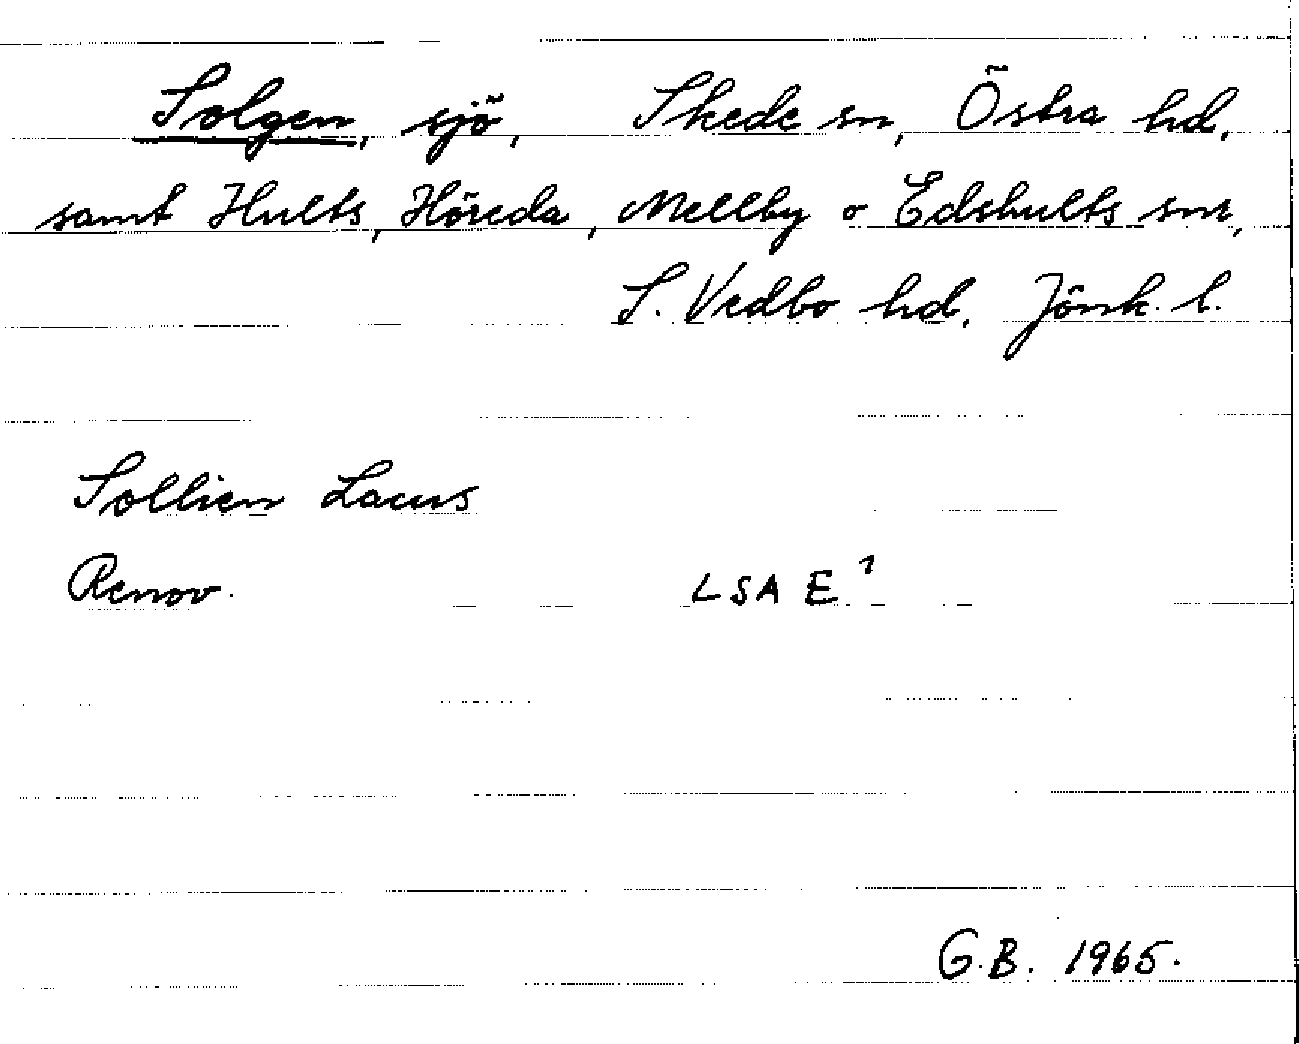 Solgen, sjö, Skede sn, Östra hd,
samt Hults, Höreda, Mellby o Edshults snr,
S. Vedbo hd, Jönk. l.
Sollien Lacus
Renov. LSA E¹
G.B. 1965.